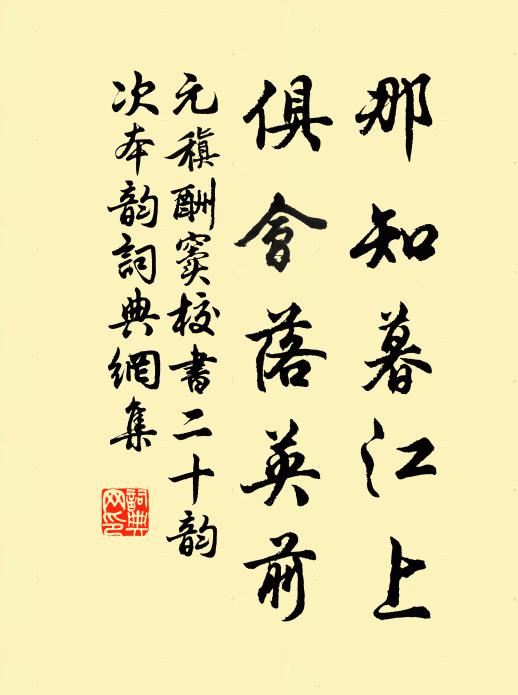 那知暮江上
俱會落英前
元稹酬竇校書二十韵
次本韵詞典網集
詞典网印